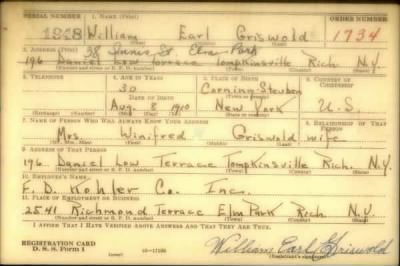 SERIAL NUMBER 1. NAME (Print) ORDER NUMBER
1848 William Earl Griswold 1734
(First) (Middle) (Last)
2. ADDRESS (Print) 38 Innis St. Elm Park
196 Daniel Low Terrace Tompkinsville Rich. N.Y.
(Number and street or R. F. D. number) (Town) (County) (State)
3. TELEPHONE 4. AGE IN YEARS 5. PLACE OF BIRTH 6. COUNTRY OF CITIZENSHIP
30 Corning Steuben
DATE OF BIRTH (Town or county)
Aug. 8 1910 New York U.S.
(Exchange) (Number) (Mo.) (Day) (Yr.) (State or country)
7. NAME OF PERSON WHO WILL ALWAYS KNOW YOUR ADDRESS 8. RELATIONSHIP OF THAT PERSON
Mrs. Winifred Griswald wife
(Mr., Mrs., Miss) (First) (Middle) (Last)
9. ADDRESS OF THAT PERSON
196 Daniel Low Terrace Tompkinsville Rich. N.Y.
(Number and street or R. F. D. number) (Town) (County) (State)
10. EMPLOYER'S NAME
F. D. Kohler Co. Inc.
11. PLACE OF EMPLOYMENT OR BUSINESS
2541 Richmond Terrace Elm Park Rich N.Y.
(Number and street or R. F. D. number) (Town) (County) (State)
I AFFIRM THAT I HAVE VERIFIED ABOVE ANSWERS AND THAT THEY ARE TRUE.
REGISTRATION CARD
D. S. S. Form 1 (over) William Earl Griswold
(Registrant's signature)